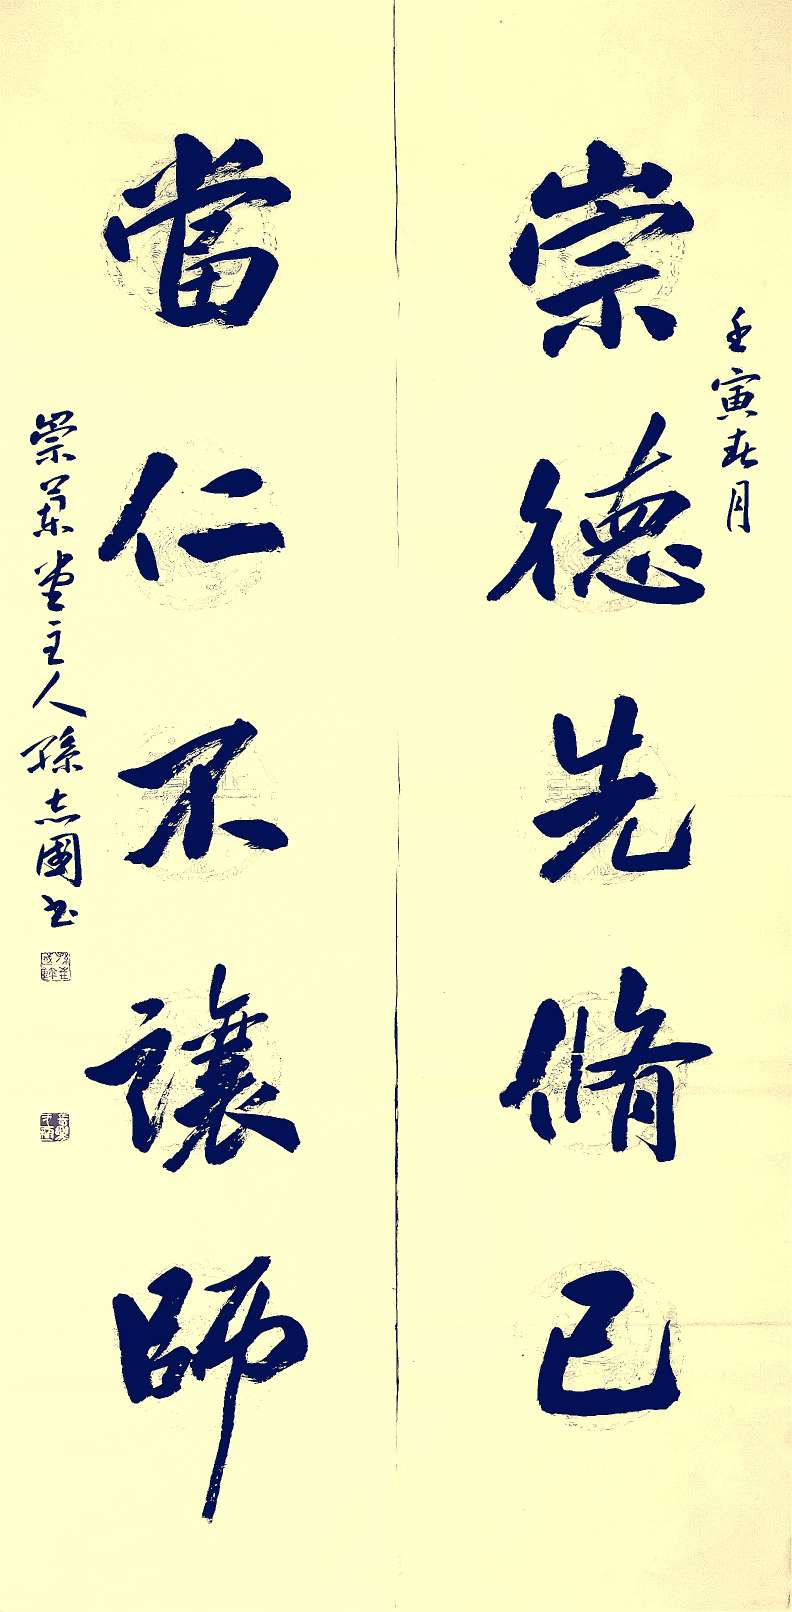 壬寅春月
崇德先脩己
當仁不讓師
崇蘭堂主人孫志國書